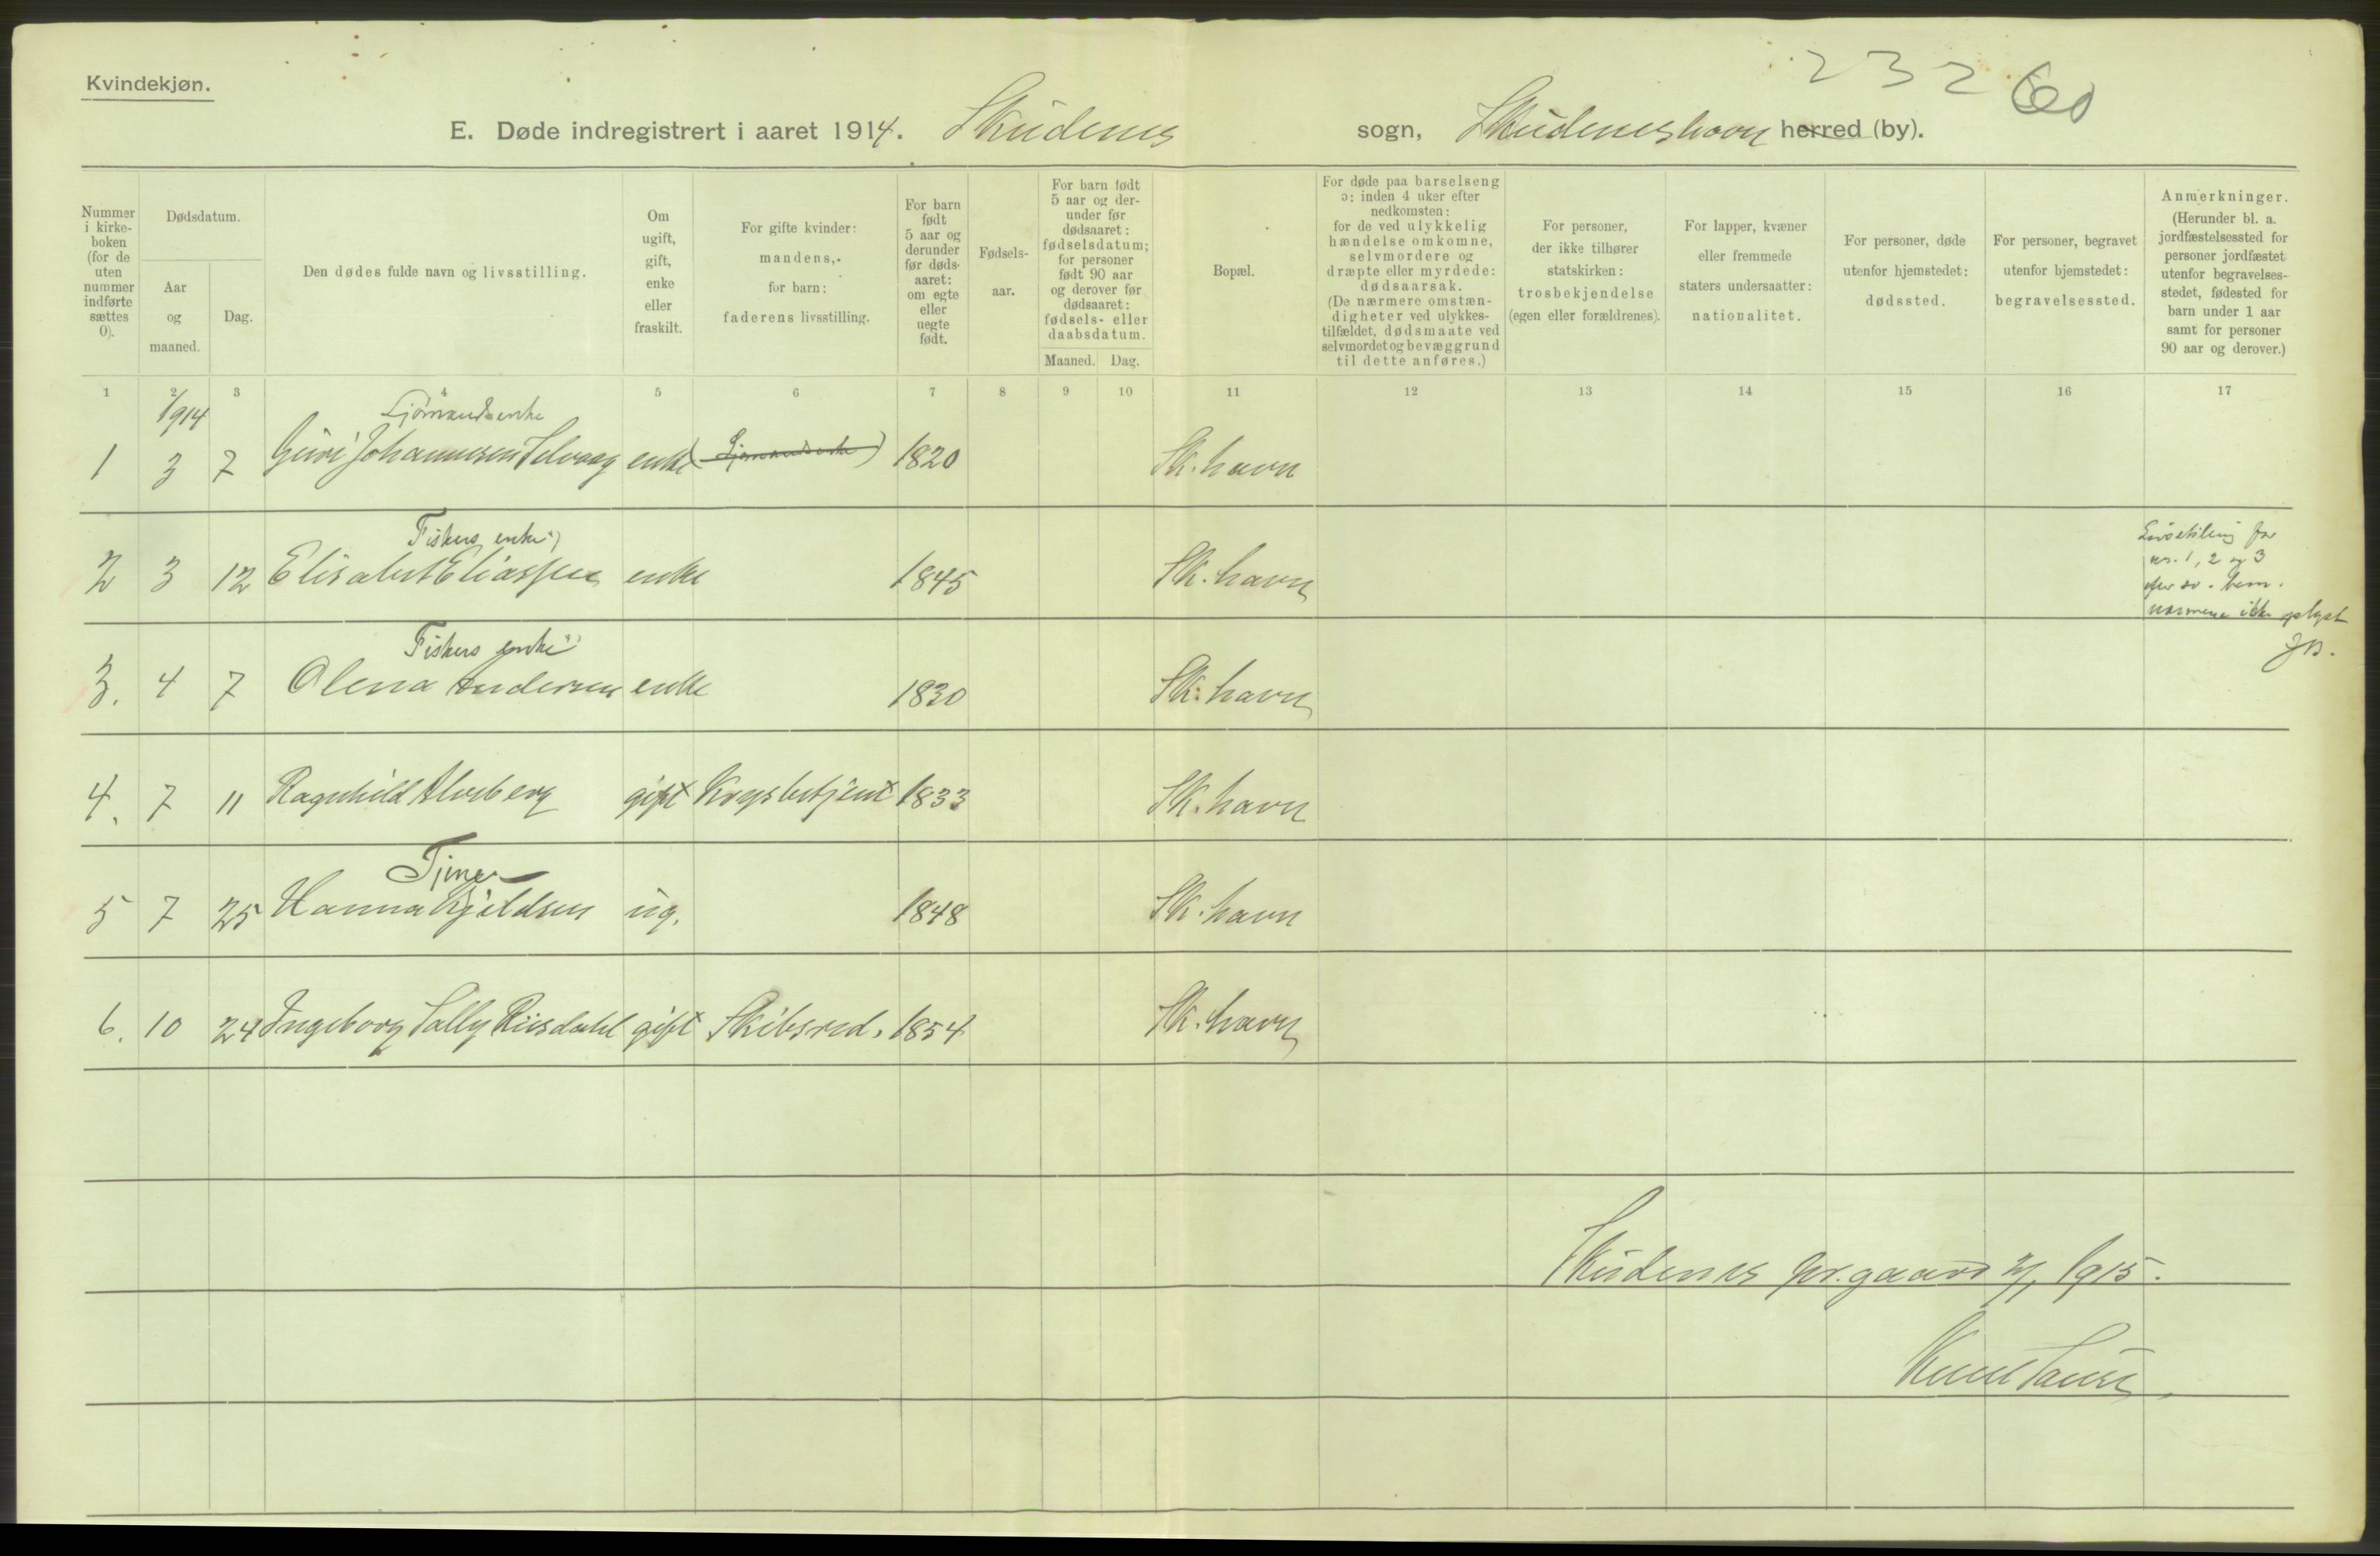 Kvindekjøn.
2 3 2 60
E. Døde indregistrert i aaret 1914. Skudenes sogn, Skudeneshavn herred (by).
Nummer i kirke- boken (for de uten nummer indførte sættes 0).
Dødsdatum.
Aar og maaned.
Dag.
Den dødes fulde navn og livsstilling.
Om ugift, gift, enke eller fraskilt.
For gifte kvinder: mandens, for barn: faderens livsstilling.
For barn født 5 aar og derunder før døds- aaret: om egte eller uegte født.
Fødsels- aar.
For barn født 5 aar og der- under før dødsaaret: fødselsdatum; for personer født 90 aar og derover før dødsaaret: fødsels- eller daabsdatum.
Maaned. Dag.
Bopæl.
For døde paa barselseng ɔ: inden 4 uker efter nedkomsten: for de ved ulykkelig hændelse omkomne, selvmordere og dræpte eller myrdede: dødsaarsak. (De nærmere omstæn- digheter ved ulykkes- tilfældet, dødsmaate ved selvmordet og bevæggrund til dette anføres.)
For personer, der ikke tilhører statskirken: trosbekjendelse (egen eller forældrenes).
For lapper, kvæner eller fremmede staters undersaatter: nationalitet.
For personer, døde utenfor hjemstedet: dødssted.
For personer, begravet utenfor hjemstedet: begravelsessted.
Anmerkninger. (Herunder bl. a. jordfæstelsessted for personer jordfæstet utenfor begravelses- stedet, fødested for barn under 1 aar samt for personer 90 aar og derover.)
1 2 3 4 5 6 7 8 9 10 11 12 13 14 15 16 17
1914 Sjømandsenke
1 3 7 Guri Johannesen Selvaag enke (Sjømandsenke) 1820 Sk. havn
Fiskers enke
2 3 12 Elisabet Eliassen enke 1845 Sk. havn
Livsstilling for
nr. 1, 2 og 3
nærmere ikke oplyst
JB.
Fiskers enke
3. 4 7 Olena Andersen enke 1830 Sk. havn
4. 7 11 Ragnhild Alsberg gift 1833 Sk. havn
Tjener
5 7 25 Hanna Kjeldsen ug. 1848 Sk. havn
6. 10 24 Ingeborg Sally Riisdahl gift Skibsred. 1854 Sk. havn
Skudenes pr.gaard 1915.